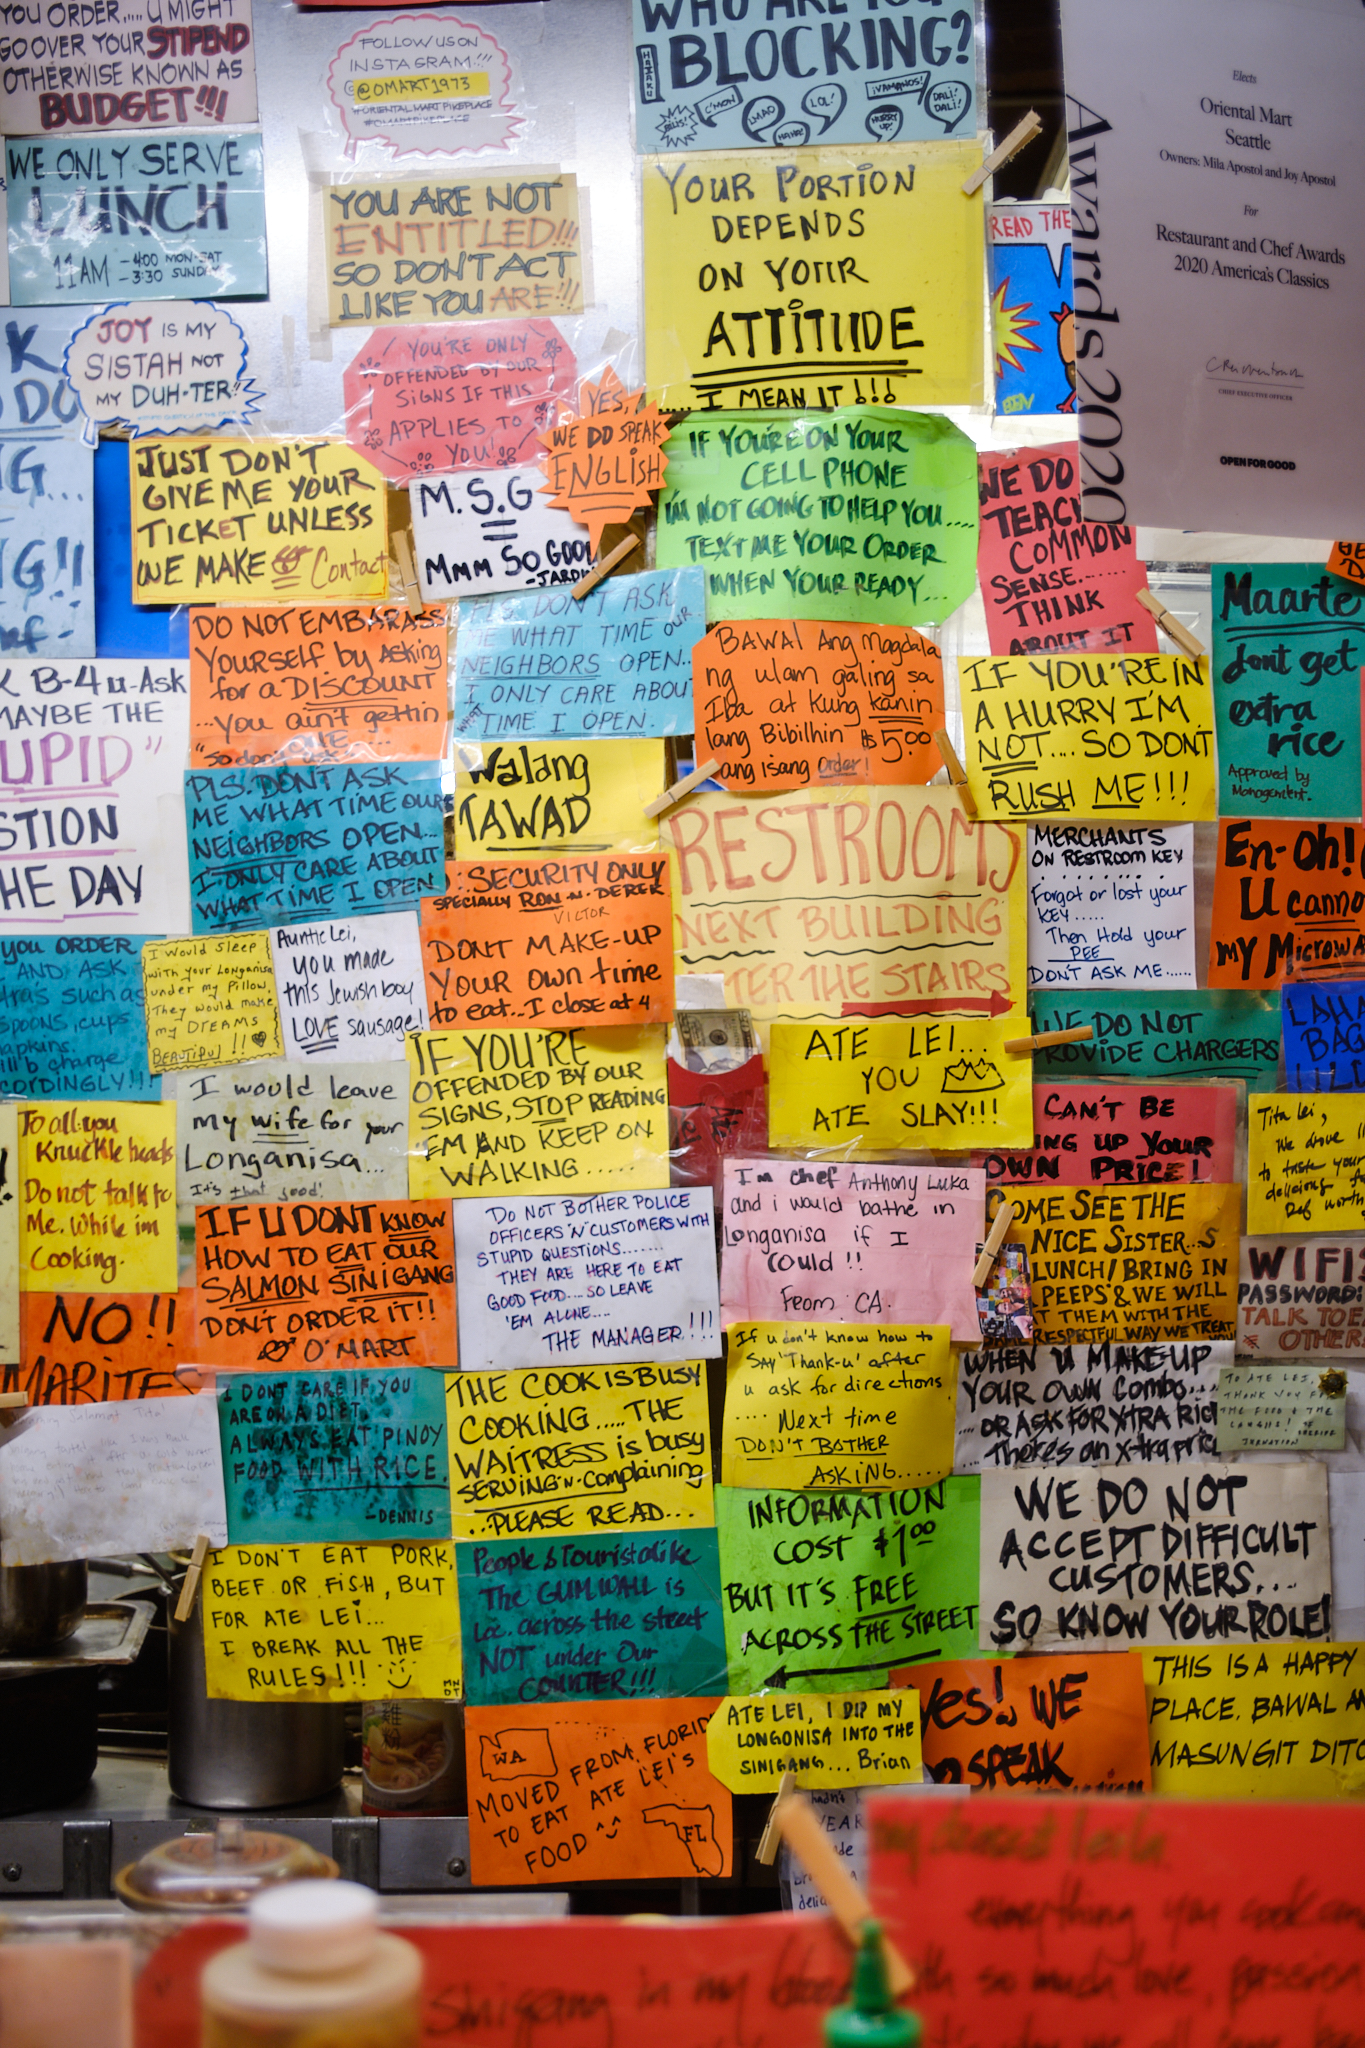 YOU ORDER..... U MIGHT
GO OVER YOUR STIPEND
OTHERWISE KNOWN AS
BUDGET!!!
FOLLOW US ON
INSTAGRAM!!!
@OMART1973
#ORIENTALMARTPIKEPLACE
#OMARTPIKEPLACE
WHO ARE YOU
BLOCKING?
C'MON
LMAO
HAHA!
LOL!
HURRY UP!
¡VAMANOS!
DALI! DALI!
Awards 2020
Elects
Oriental Mart
Seattle
Owners: Mila Apostol and Joy Apostol
For
Restaurant and Chef Awards
2020 America's Classics
CHIEF EXECUTIVE OFFICER
OPEN FOR GOOD
WE ONLY SERVE
LUNCH
11AM -4:00 MON-SAT
-3:30 SUNDAY
YOU ARE NOT
ENTITLED!!!
SO DON'T ACT
LIKE YOU ARE!!!
YOUR PORTION
DEPENDS
ON YOUR
ATTITUDE
I MEAN IT!!!
READ THE
JOY IS MY
SISTAH NOT
MY DUH-TER!!
YOU'RE ONLY
OFFENDED BY OUR
SIGNS IF THIS
APPLIES TO
YOU!
YES,
WE DO SPEAK
ENGLISH
JUST DON'T
GIVE ME YOUR
TICKET UNLESS
WE MAKE Contact
M.S.G
=
Mmm SO GOOD
IF YOU'RE ON YOUR
CELL PHONE
I'M NOT GOING TO HELP YOU....
TEXT ME YOUR ORDER
WHEN YOUR READY...
WE DO
TEACH
COMMON
SENSE......
THINK
ABOUT IT
Maarte
dont get
extra
rice
Approved by
Management.
DO NOT EMBARASS
YOURSELF by ASKING
for a DISCOUNT
...you ain't gettin
ONE...
PLS. DON'T ASK
ME WHAT TIME OUR
NEIGHBORS OPEN..
I ONLY CARE ABOUT
WHAT TIME I OPEN.
BAWAL Ang Magdala
ng ulam galing sa
Iba at kung kanin
lang Bibilhin $5.00
ang isang order!
IF YOU'RE IN
A HURRY I'M
NOT.... SO DONT
RUSH ME!!!
B-4 u-Ask
MAYBE THE
UPID"
STION
HE DAY
PLS. DONT ASK
ME WHAT TIME OUR
NEIGHBORS OPEN...
I ONLY CARE ABOUT
WHAT TIME I OPEN
Walang
TAWAD
RESTROOMS
NEXT BUILDING
AFTER THE STAIRS
MERCHANTS
ON RESTROOM KEY
Forgot or lost your
KEY.....
Then Hold your
PEE
DON'T ASK ME......
En-Oh!
U canno
MY Microwa
SECURITY ONLY
SPECIALLY RON N. DEREK
VICTOR
DONT MAKE-UP
YOUR OWN time
to eat...I close at 4
you ORDER
AND ASK
tra's such as
spoons, cups
napkins.
ill b charge
CORDINGLY!!!
I would sleep
with your Longanisa
under my Pillow.
They would make
my DREAMS
BEAUTIFUL!!
Auntie Lei,
you made
this Jewish boy
LOVE sausage!
WE DO NOT
PROVIDE CHARGERS
LAHA
BAG
ATE LEI...
YOU
ATE SLAY!!!
IF YOU'RE
OFFENDED BY OUR
SIGNS, STOP READING
'EM AND KEEP ON
WALKING......
I would leave
my wife for your
Longanisa...
It's that good!
CAN'T BE
ING UP YOUR
OWN PRICE!
Tita Lei,
We drove
to taste your
delicious
Def worth
To all you
Knuckle heads
Do not talk to
Me. While im
Cooking.
I'm chef Anthony Luka
and i would bathe in
Longanisa if I
Could!!
From CA.
IF U DONT KNOW
HOW TO EAT OUR
SALMON SINIGANG
DON'T ORDER IT!!
O'MART
DO NOT BOTHER POLICE
OFFICERS 'N' CUSTOMERS WITH
STUPID QUESTIONS.......
THEY ARE HERE TO EAT
GOOD FOOD....SO LEAVE
'EM ALONE....
THE MANAGER!!!
COME SEE THE
NICE SISTER..S
LUNCH! BRING IN
PEEPS & WE WILL
THEM WITH THE
RESPECTFUL WAY WE TREAT
YOU
WIFI
PASSWORD:
TALK TO E
OTHER
NO!!
MARITES
If u don't know how to
SAY 'Thank-u' after
u ask for directions
.... Next time
DON'T BOTHER
ASKING.....
WHEN U MAKE-UP
YOUR OWN Combo...
..OR ASK FOR XTRA RICE
...There's an x-tra price
TO ATE LEI,
THANK YOU FOR
THE FOOD & THE
LAUGHS!
I DONT CARE IF YOU
ARE ON A DIET.
ALWAYS EAT PINOY
FOOD WITH RICE.
-DENNIS
THE COOK IS BUSY
COOKING.....THE
WAITRESS is busy
SERVING 'N' Complaining
...PLEASE READ...
INFORMATION
COST $1.00
BUT IT'S FREE
ACROSS THE STREET
WE DO NOT
ACCEPT DIFFICULT
CUSTOMERS...
SO KNOW YOUR ROLE!
I DON'T EAT PORK,
BEEF OR FISH, BUT
FOR ATE LEI...
I BREAK ALL THE
RULES!!!
People & Tourist alike
The GUM WALL is
Loc. across the street
NOT under Our
COUNTER!!!
ATE LEI, I DIP MY
LONGONISA INTO THE
SINIGANG... Brian
Yes! WE
DO SPEAK
THIS IS A HAPPY
PLACE. BAWAL AN
MASUNGIT DITO
WA
MOVED FROM FLORIDA
TO EAT ATE LEI'S
FOOD
FL
my dearest leila
everything you cook
Sinigang in my blood with so much love, passion